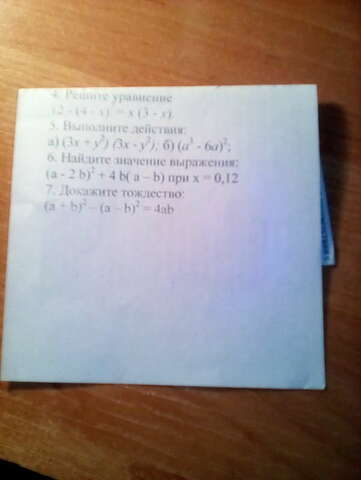 4. Решите уравнение
12 - (4 - x) = x (3 - x).
5. Выполните действия:
а) (3x + y²) (3x - y²); б) (a³ - 6a)²;
6. Найдите значение выражения:
(a - 2 b)² + 4 b( a – b) при x = 0,12
7. Докажите тождество:
(a + b)² – (a – b)² = 4ab